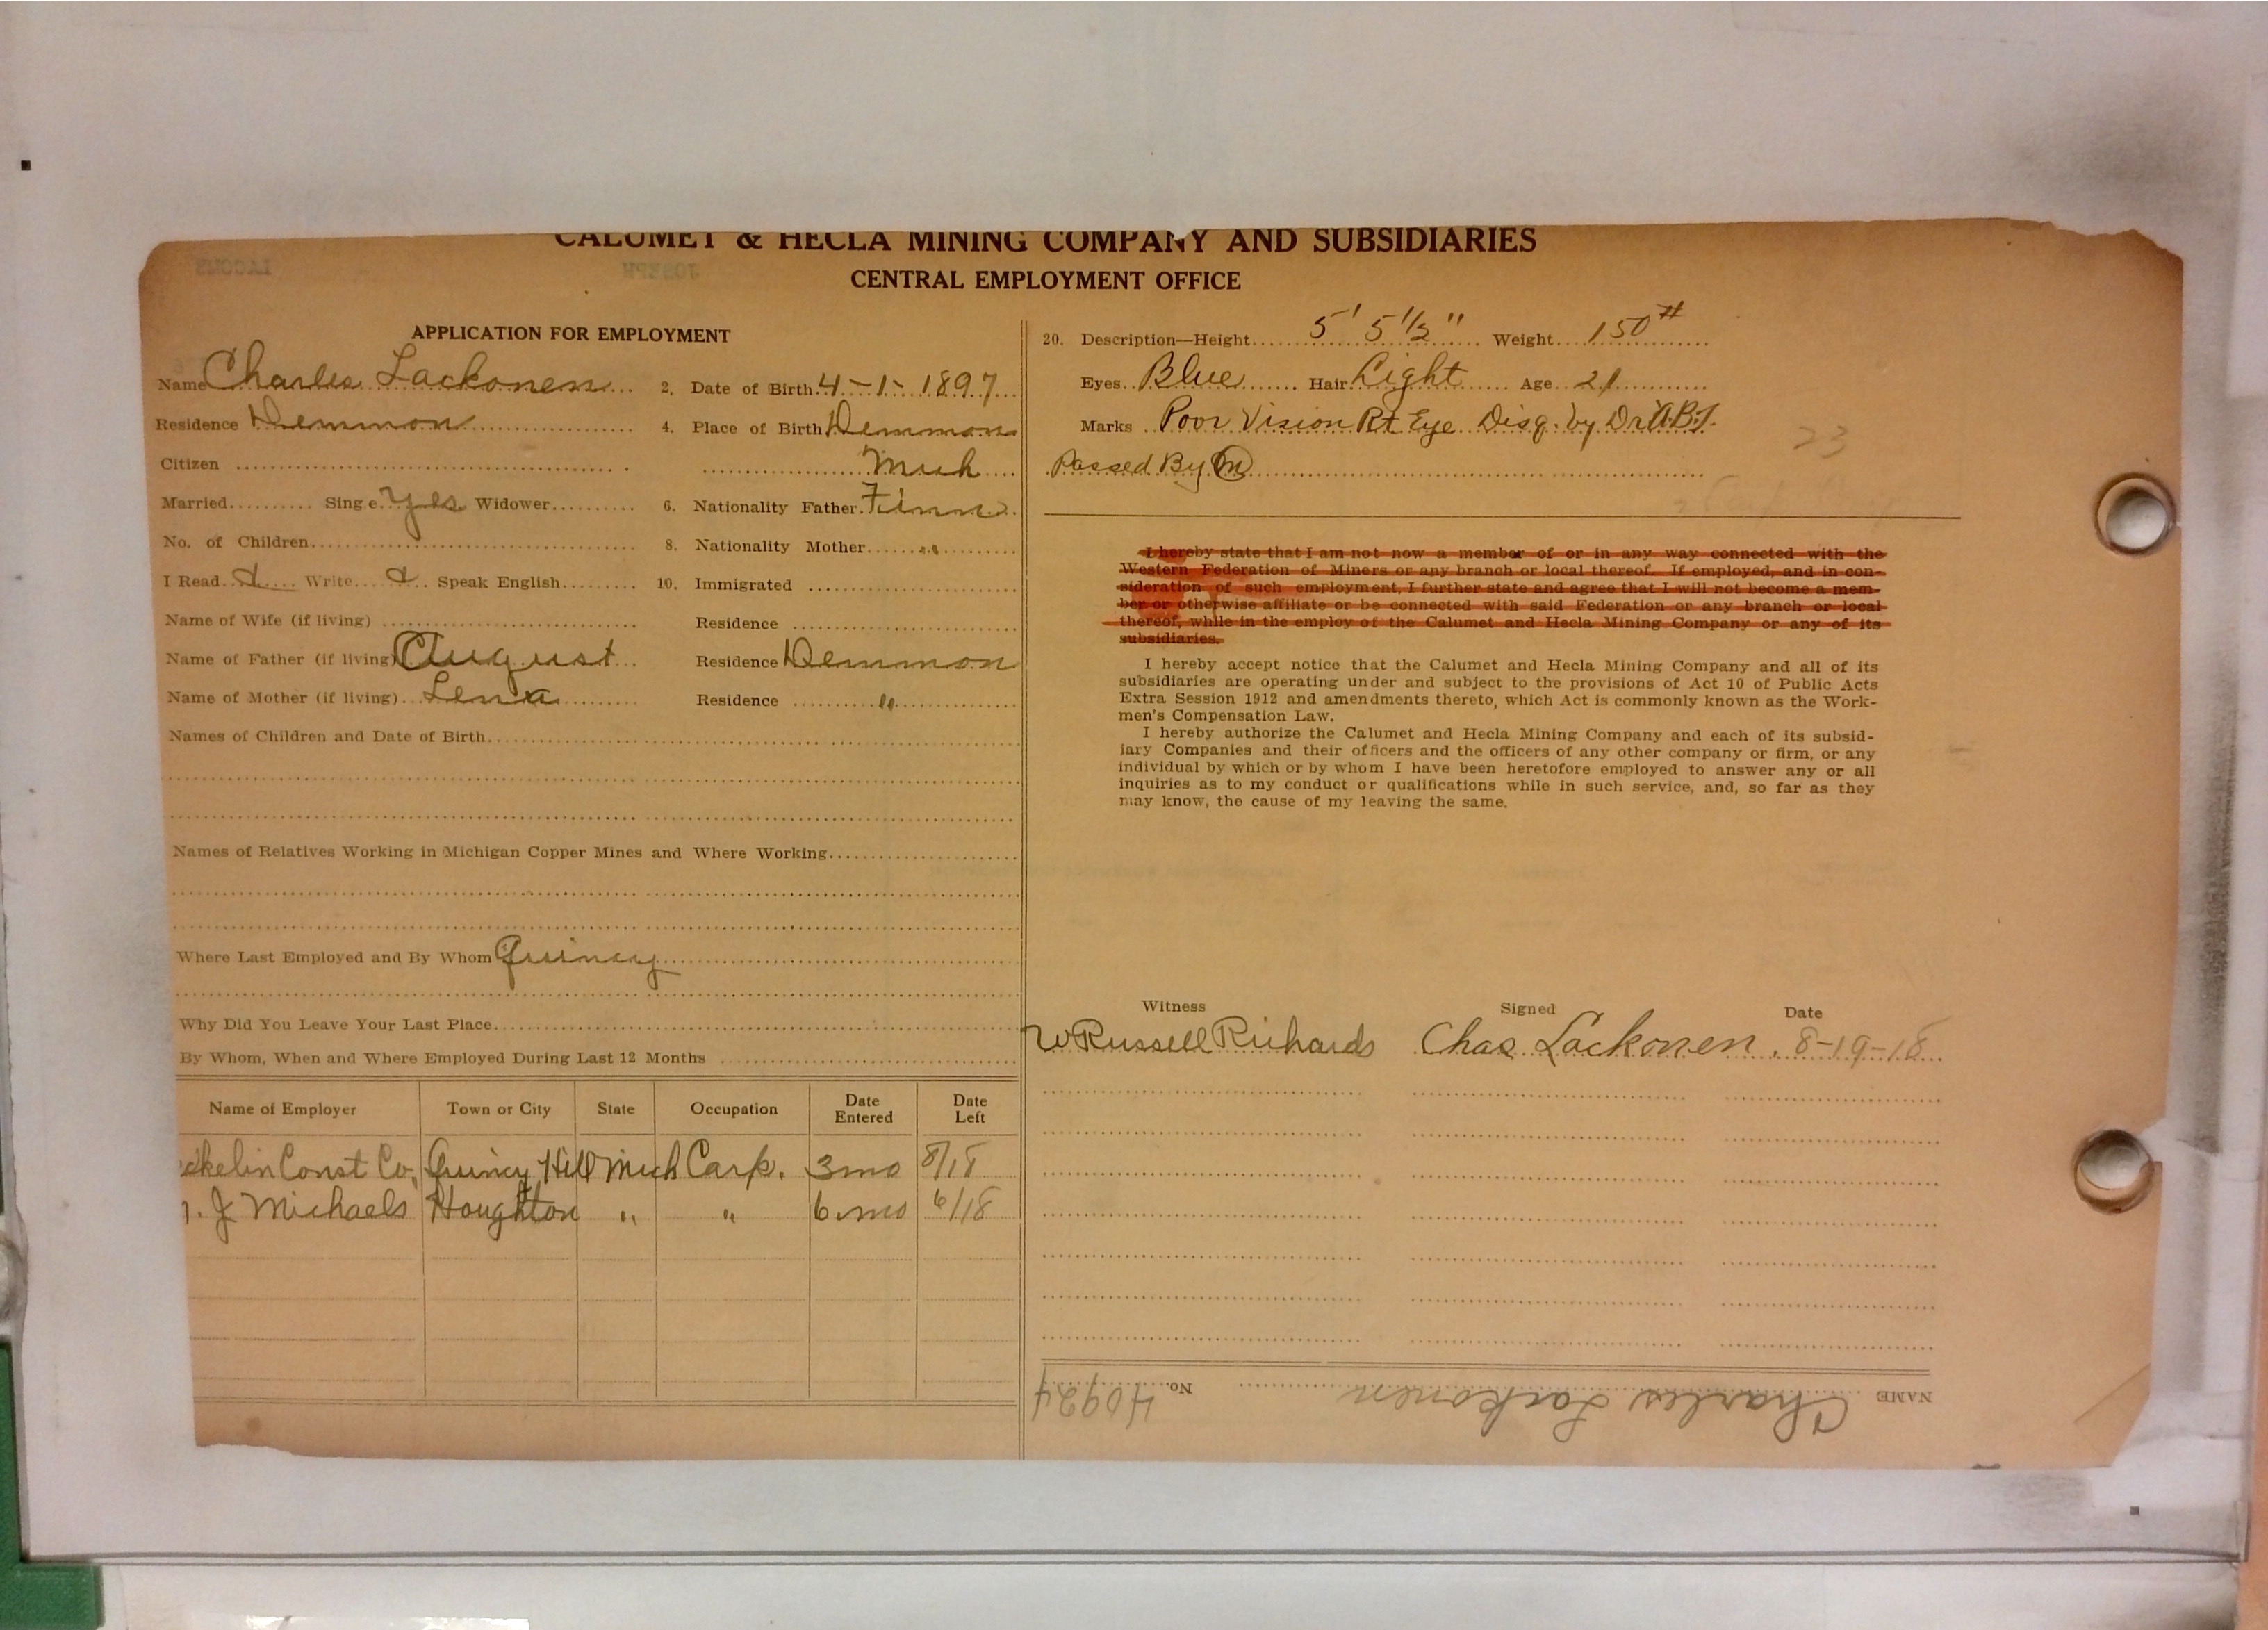 CALUMET & HECLA MINING COMPANY AND SUBSIDIARIES
CENTRAL EMPLOYMENT OFFICE
APPLICATION FOR EMPLOYMENT
Name Charles Lackonen 2. Date of Birth 4-1-1897
Residence Demmon 4. Place of Birth Demmon
Citizen Mich
Married Single Yes Widower 6. Nationality Father Finn
No. of Children 8. Nationality Mother "
I Read & Write & Speak English 10. Immigrated
Name of Wife (if living) Residence
Name of Father (if living) August Residence Demmon
Name of Mother (if living) Lena Residence "
Names of Children and Date of Birth
Names of Relatives Working in Michigan Copper Mines and Where Working
Where Last Employed and By Whom Quincy
Why Did You Leave Your Last Place
By Whom, When and Where Employed During Last 12 Months
Name of Employer Town or City State Occupation Date Entered Date Left
Const Co, Quincy Hill Mich Carp. 3 mo 8/18
J Michaels Houghton " " 6 mo 6/18
20. Description—Height 5' 5 1/2" Weight 150#
Eyes Blue Hair Light Age 21
Marks Poor Vision Rt Eye Disq. by Dr A.B.
Passed By
23
I hereby state that I am not now a member of or in any way connected with the
Western Federation of Miners or any branch or local thereof. If employed, and in con-
sideration of such employment, I further state and agree that I will not become a mem-
ber or otherwise affiliate or be connected with said Federation or any branch or local
thereof, while in the employ of the Calumet and Hecla Mining Company or any of its
subsidiaries.
I hereby accept notice that the Calumet and Hecla Mining Company and all of its
subsidiaries are operating under and subject to the provisions of Act 10 of Public Acts
Extra Session 1912 and amendments thereto, which Act is commonly known as the Work-
men's Compensation Law.
I hereby authorize the Calumet and Hecla Mining Company and each of its subsid-
iary Companies and their officers and the officers of any other company or firm, or any
individual by which or by whom I have been heretofore employed to answer any or all
inquiries as to my conduct or qualifications while in such service, and, so far as they
may know, the cause of my leaving the same.
Witness Signed Date
W Russell Richards Chas Lackonen. 8-19-18
NAME Charles Lackonen No. 40924